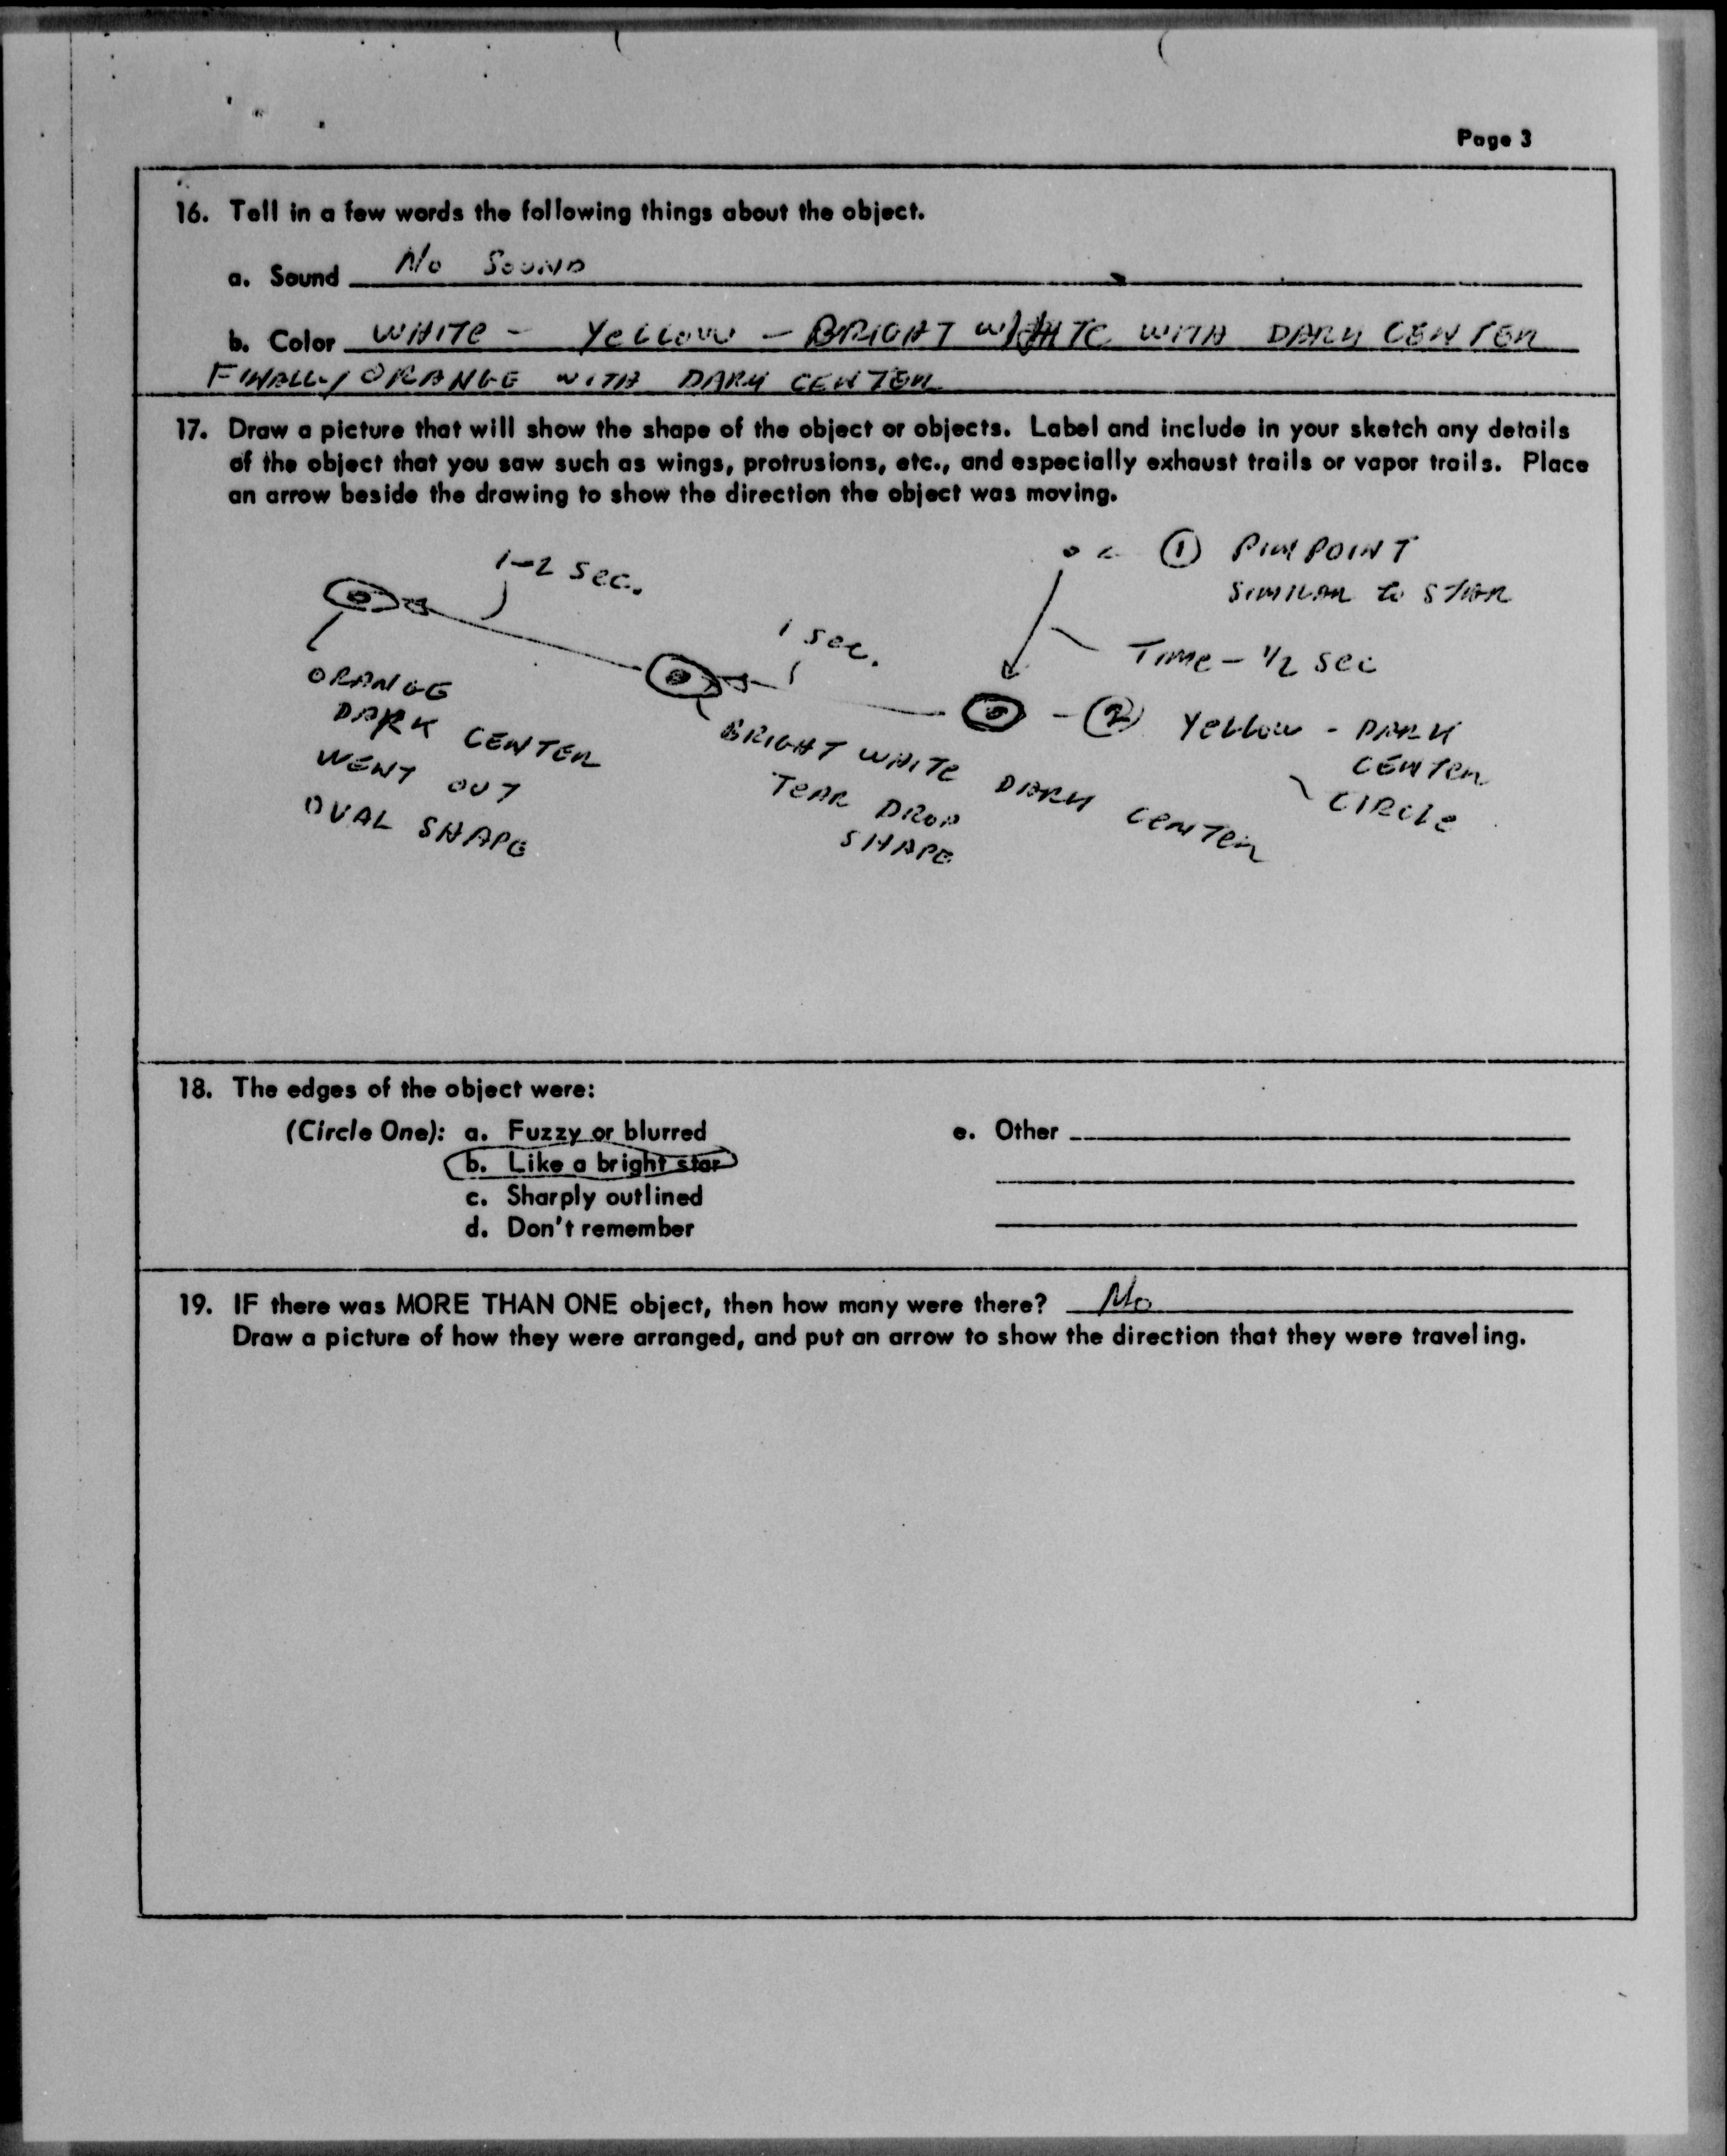 Page 3
16. Tell in a few words the following things about the object.
a. Sound No Sound
b. Color WHITE - YELLOW - BRIGHT WHITE WITH DARK CENTER
FINALLY ORANGE WITH DARK CENTER
17. Draw a picture that will show the shape of the object or objects. Label and include in your sketch any details
of the object that you saw such as wings, protrusions, etc., and especially exhaust trails or vapor trails. Place
an arrow beside the drawing to show the direction the object was moving.
① PINPOINT
SIMILAR to STAR
1-2 SEC.
1 SEC.
TIME - 1/2 SEC
② YELLOW - DARK
CENTER
CIRCLE
ORANGE
DARK CENTER
WENT OUT
OVAL SHAPE
BRIGHT WHITE DARK CENTER
TEAR DROP
SHAPE
18. The edges of the object were:
(Circle One): a. Fuzzy or blurred
b. Like a bright star
c. Sharply outlined
d. Don't remember
e. Other
19. IF there was MORE THAN ONE object, then how many were there? No
Draw a picture of how they were arranged, and put an arrow to show the direction that they were traveling.